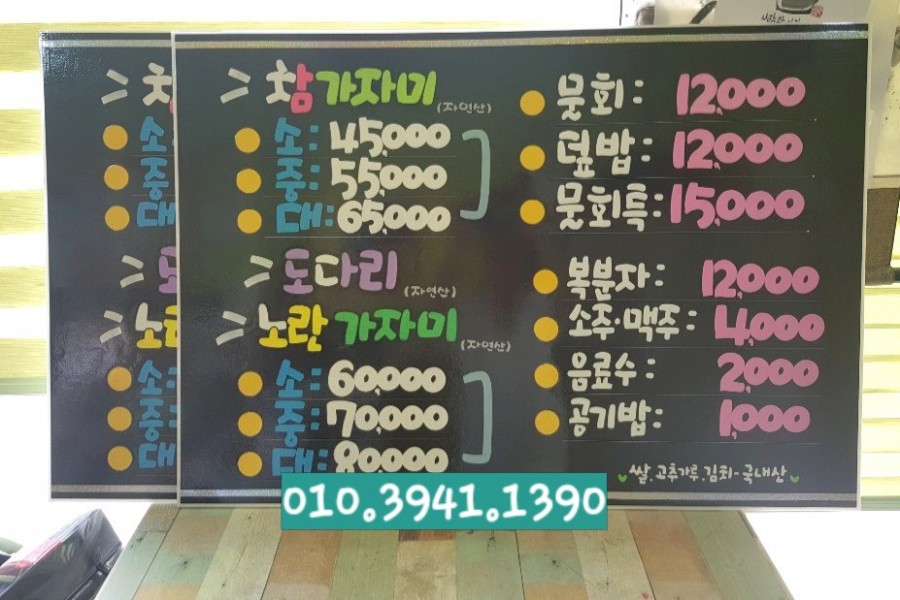 > 참가자미 (자연산)
소: 45,000
중: 55,000
대: 65,000
> 도다리 (자연산)
> 노란 가자미 (자연산)
소: 60,000
중: 70,000
대: 80,000
물회: 12,000
덮밥: 12,000
물회특: 15,000
복분자: 12,000
소주·맥주: 4,000
음료수: 2,000
공기밥: 1,000
쌀.고추가루.김치-국내산
010.3941.1390
소:
중:
대
소:
중:
대